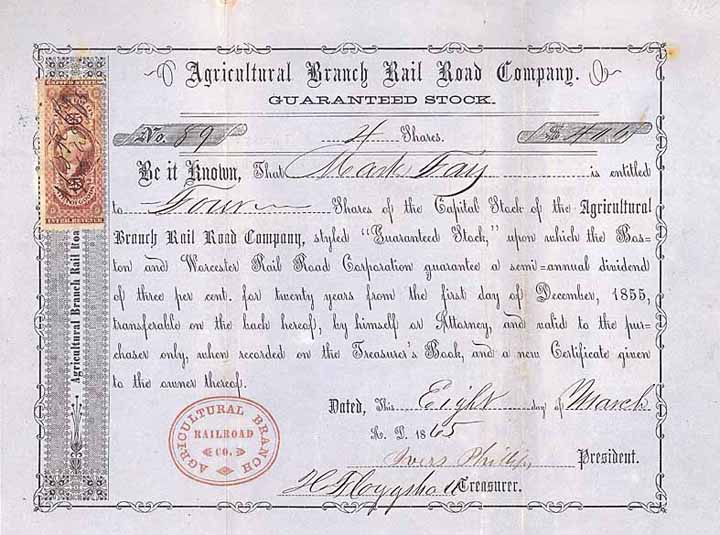 Agricultural Branch Rail Road Company.
GUARANTEED STOCK.
No. 89 4 Shares. $ 400
Be it Known, That Mark Fay is entitled
to Four Shares of the Capital Stock of the Agricultural
Branch Rail Road Company, styled "Guaranteed Stock," upon which the Bos-
ton and Worcester Rail Road Corporation guarantee a semi-annual dividend
of three per cent. for twenty years from the first day of December, 1855,
transferable on the back hereof, by himself or Attorney, and valid to the pur-
chaser only, when recorded on the Treasurer's Book, and a new Certificate given
to the owner thereof.
Dated, this Eight day of March
A. D. 1865
Ivers Phillips President.
Treasurer.
AGRICULTURAL BRANCH
RAILROAD
CO.
Agricultural Branch Rail Roa
INTER REVENUE
25